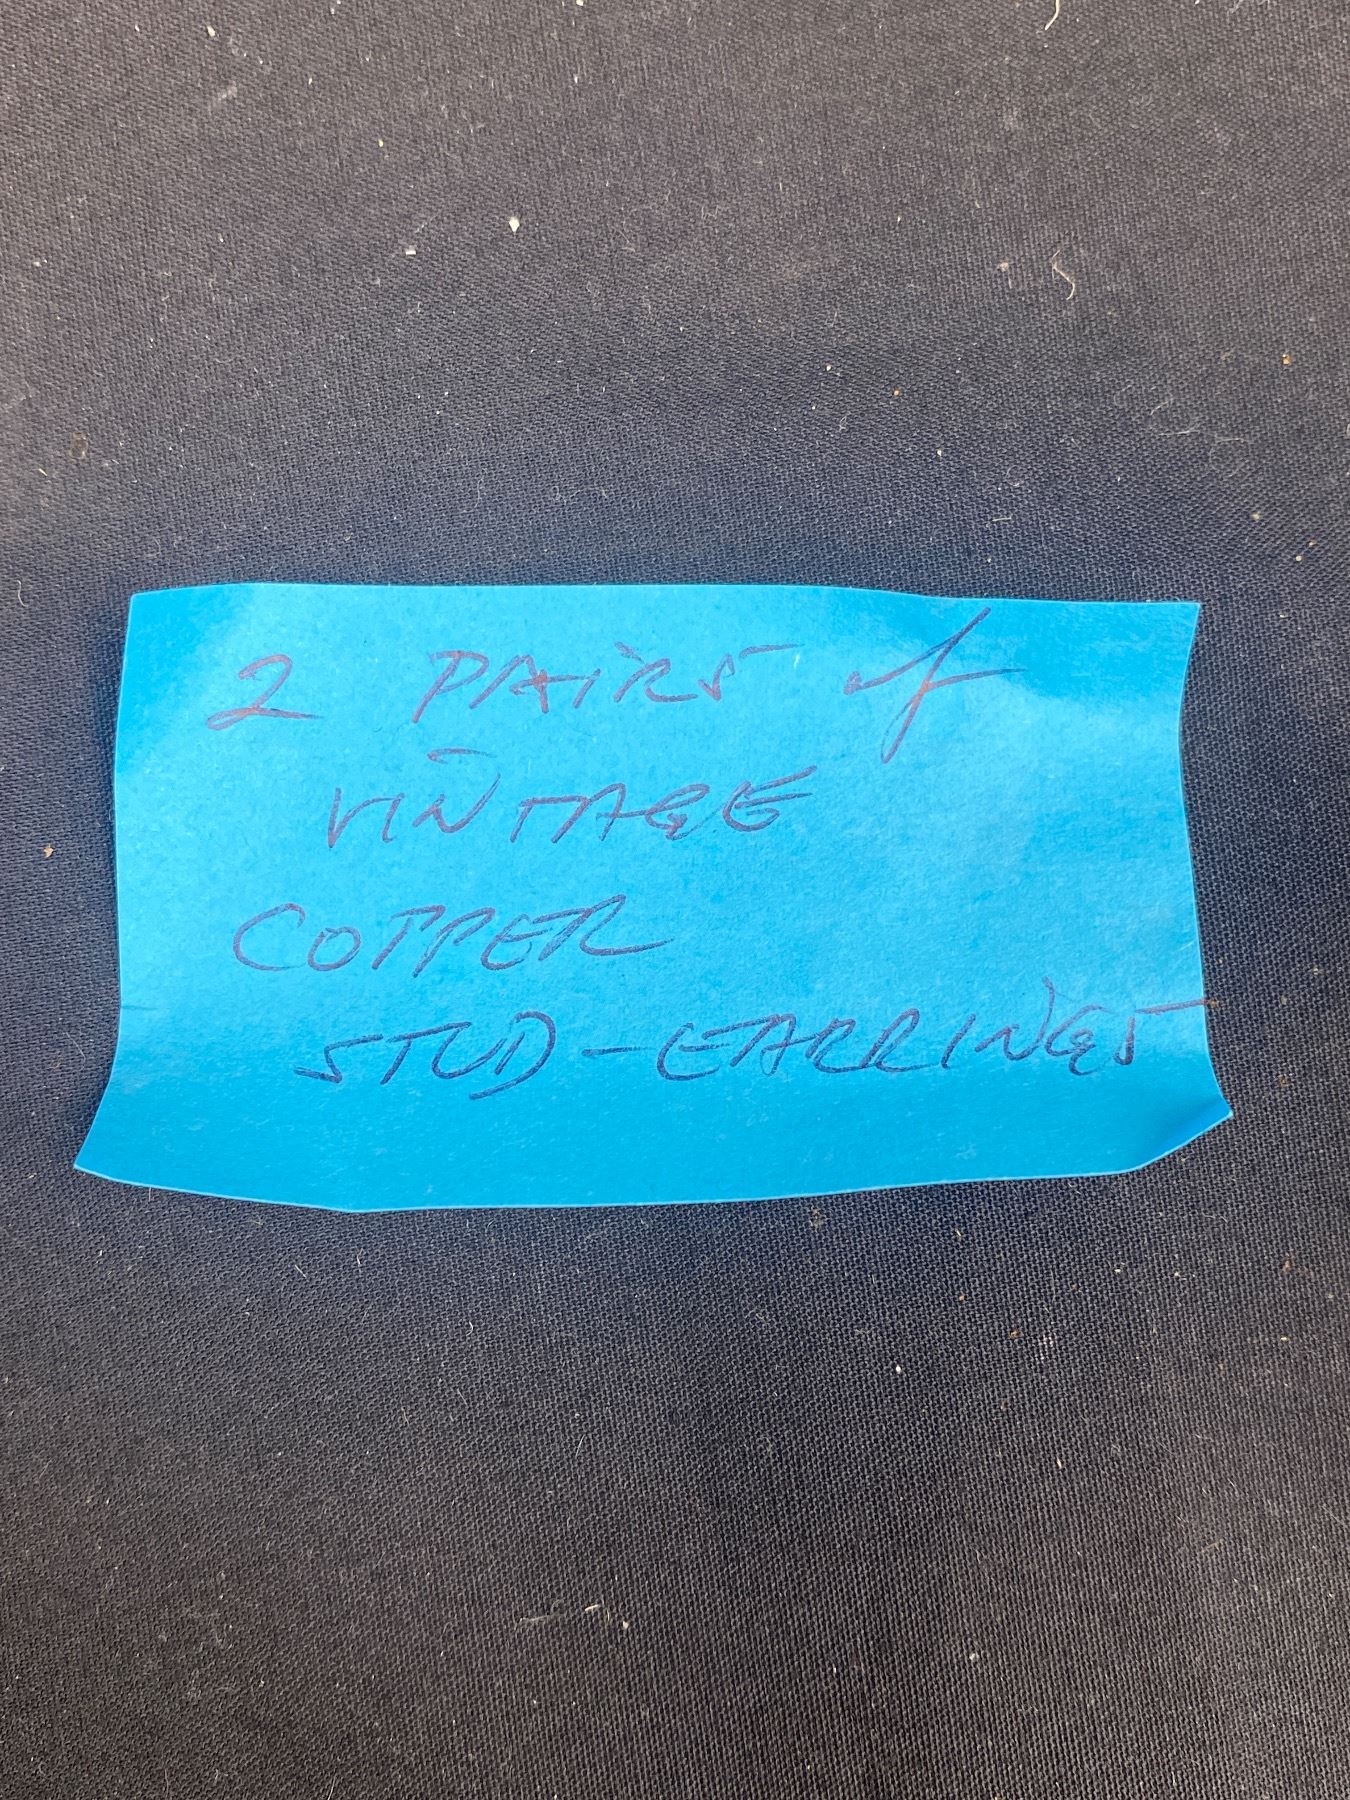 2 PAiRS of
VINTAGE
COPPER
STUD-EARRINGS